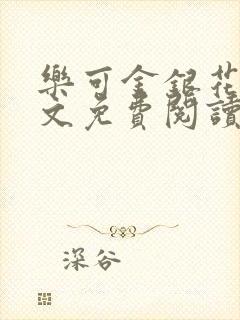 樂可金銀花
文免費閱讀
深谷